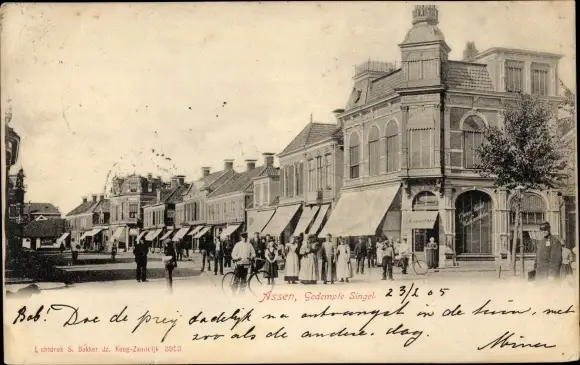 Assen, Gedempte Singel.
23/2 05
Bob! Doe de prij dadelijk na ontvangst in de tuin, met
zoo als de andere dag.
Lichtdruk S. Bakker Jz. Koog-Zaandijk 3903